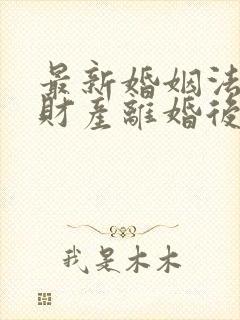 最新婚姻法
財產離婚後
我是木木